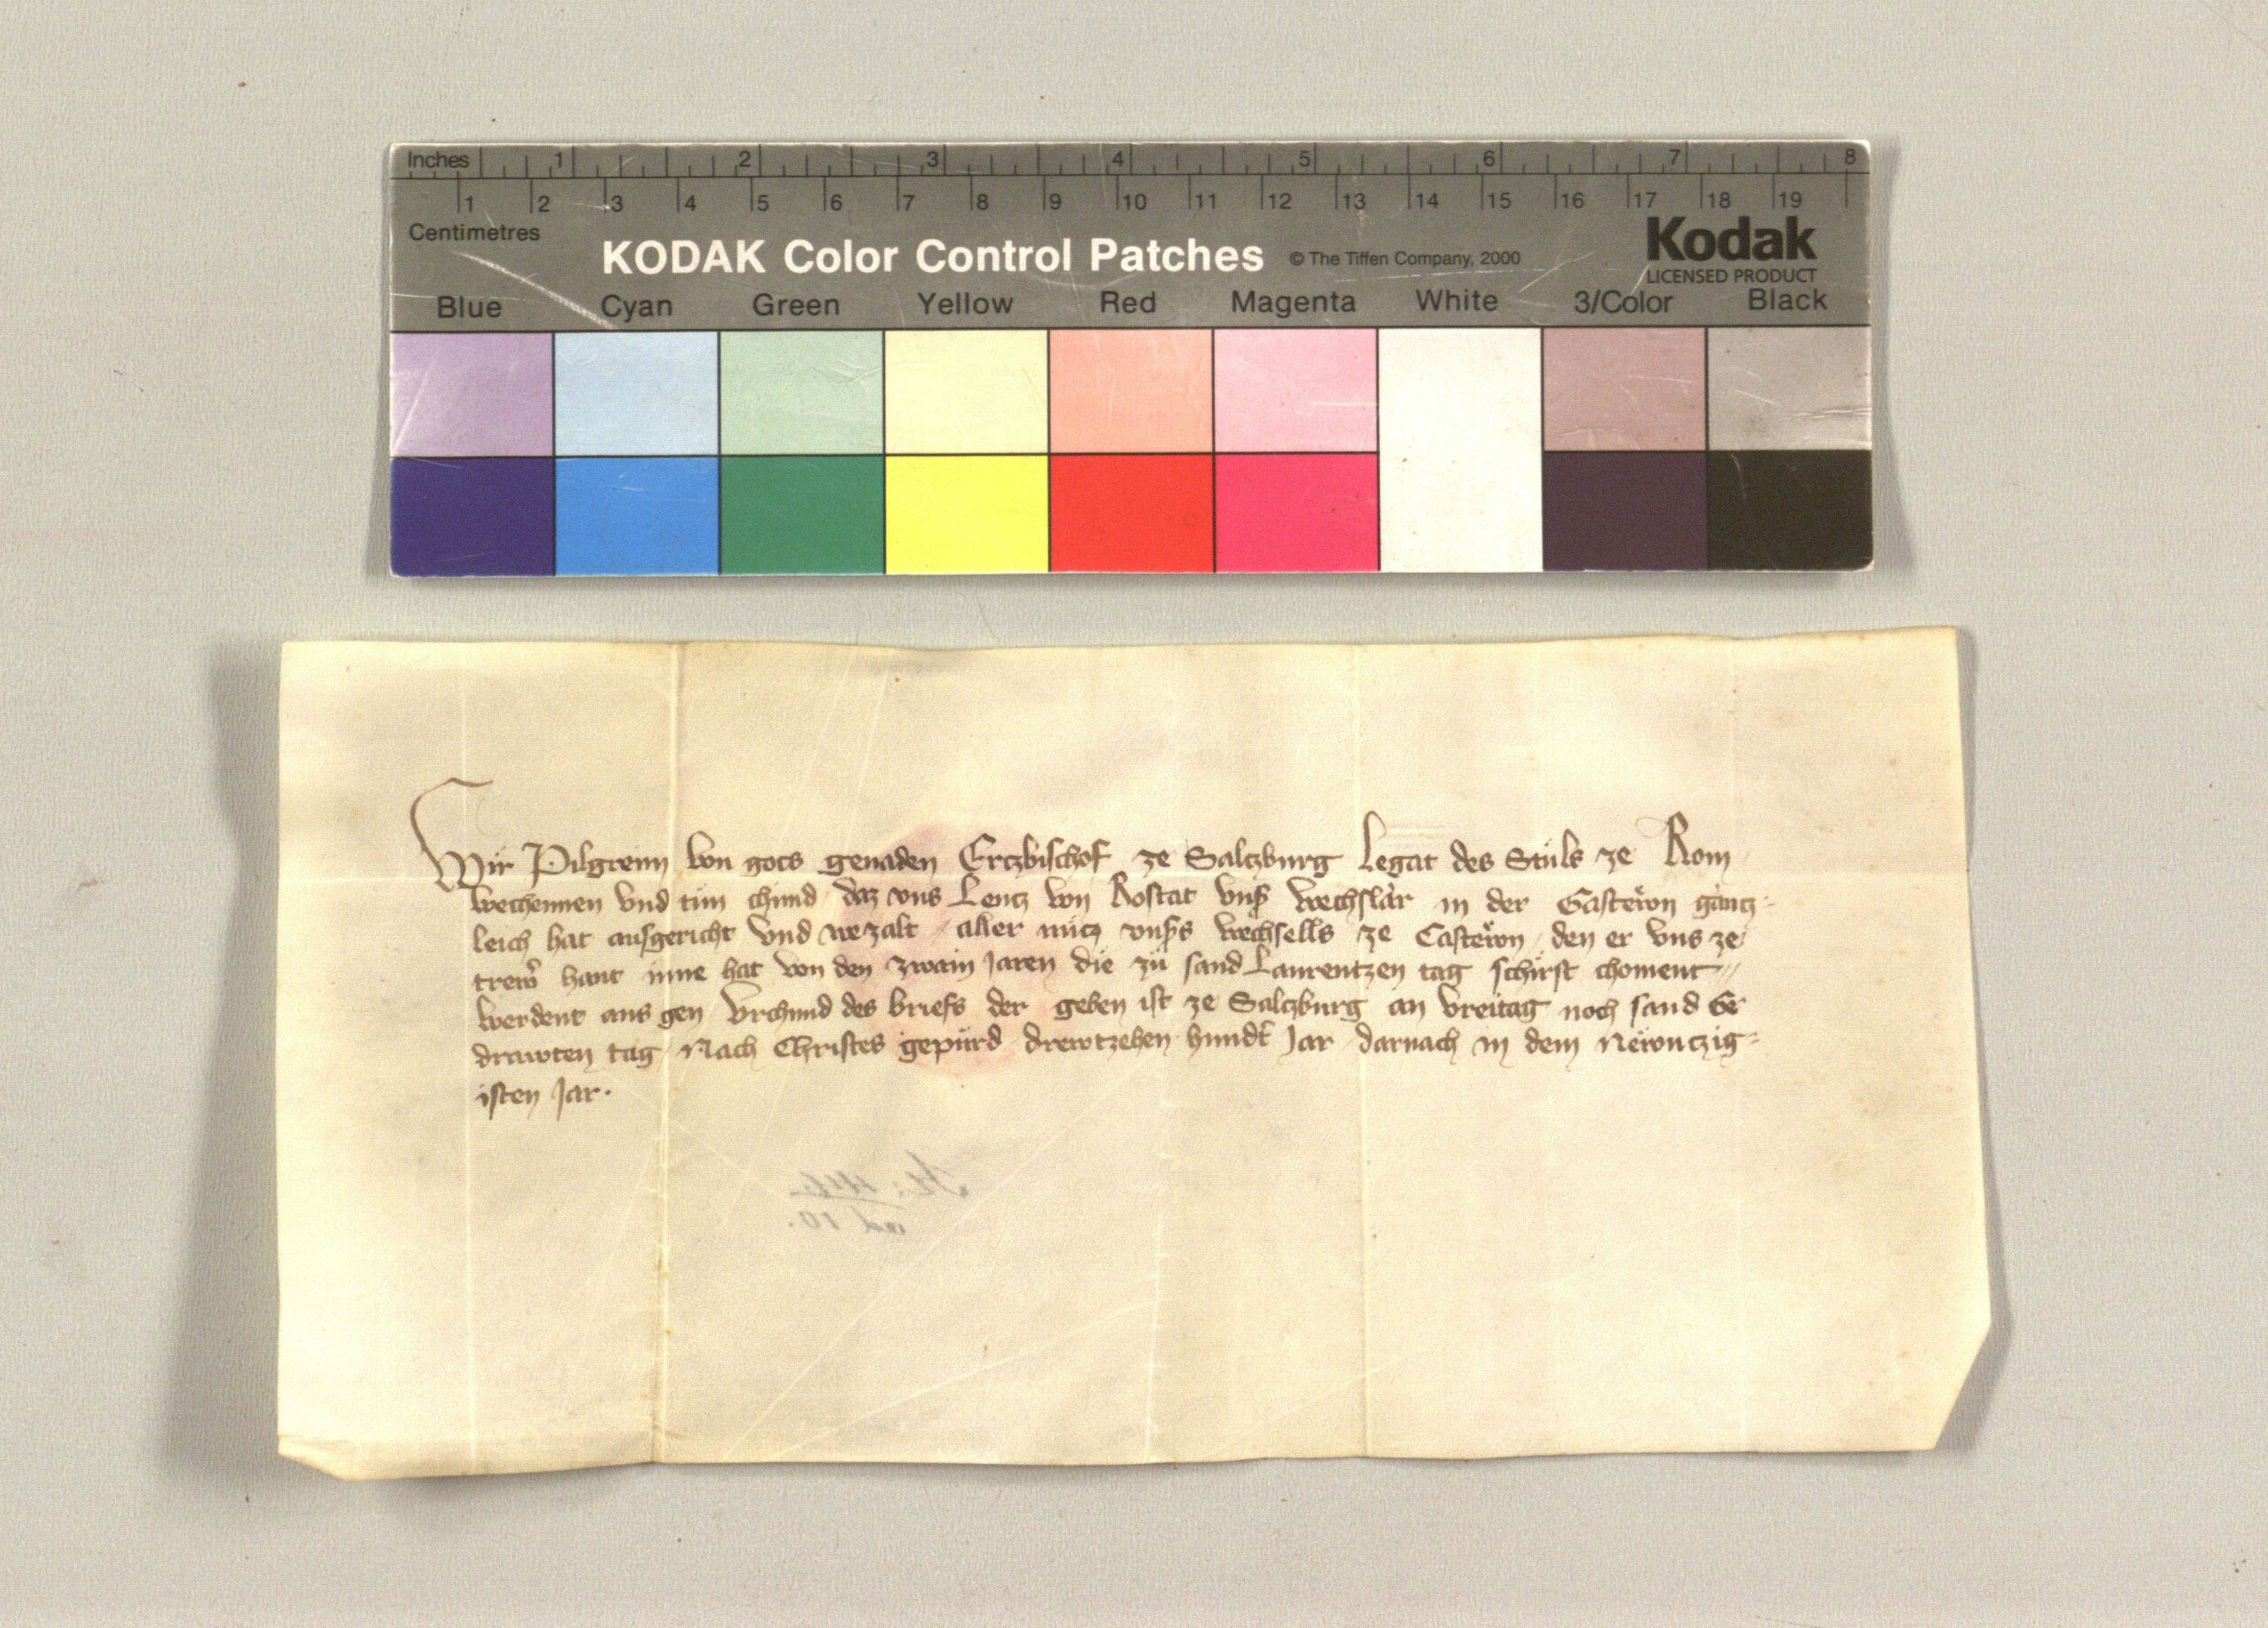 Inches 1 2 3 4 5 6 7 8
1 2 3 4 5 6 7 8 9 10 11 12 13 14 15 16 17 18 19
Centimetres
KODAK Color Control Patches © The Tiffen Company, 2000 Kodak
LICENSED PRODUCT
Blue Cyan Green Yellow Red Magenta White 3/Color Black
Wir Pilgreim von gots genaden Erczbischof ze Salczburg Legat des Stuls ze Rom
wechennen vnd tun chund daz vns Lencz von Rostat vnß wechslàr in der Gastewn gancz-
leich hat ausgericht vnd wezalt aller nucz vnßs wechsells ze Castewn den er vns ze
trewˀ hant inne hat von den zwain Jaren die zu sand Laurentzen tag schirst choment
werdent aus gen Vrchund des briefs der geben ist ze Salczburg an vreitag noch sand Ge
drawten tag Nach Christes gepurd drewtzehen hundˀt Jar darnach in dem Newnczig-
isten Jar.
ad 10.